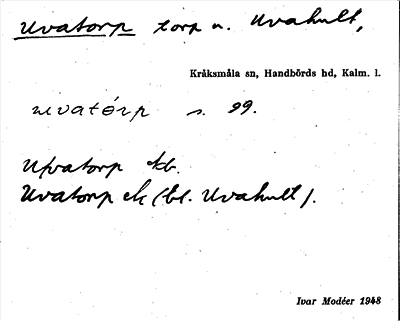 Uvatorp torp u. Uvahult,
Kråksmåla sn, Handbörds hd, Kalm. l.
uvatórp s. 99.
Ufvatorp kb.
Uvatorp ek (bl. Uvahult).
Ivar Modéer 1948